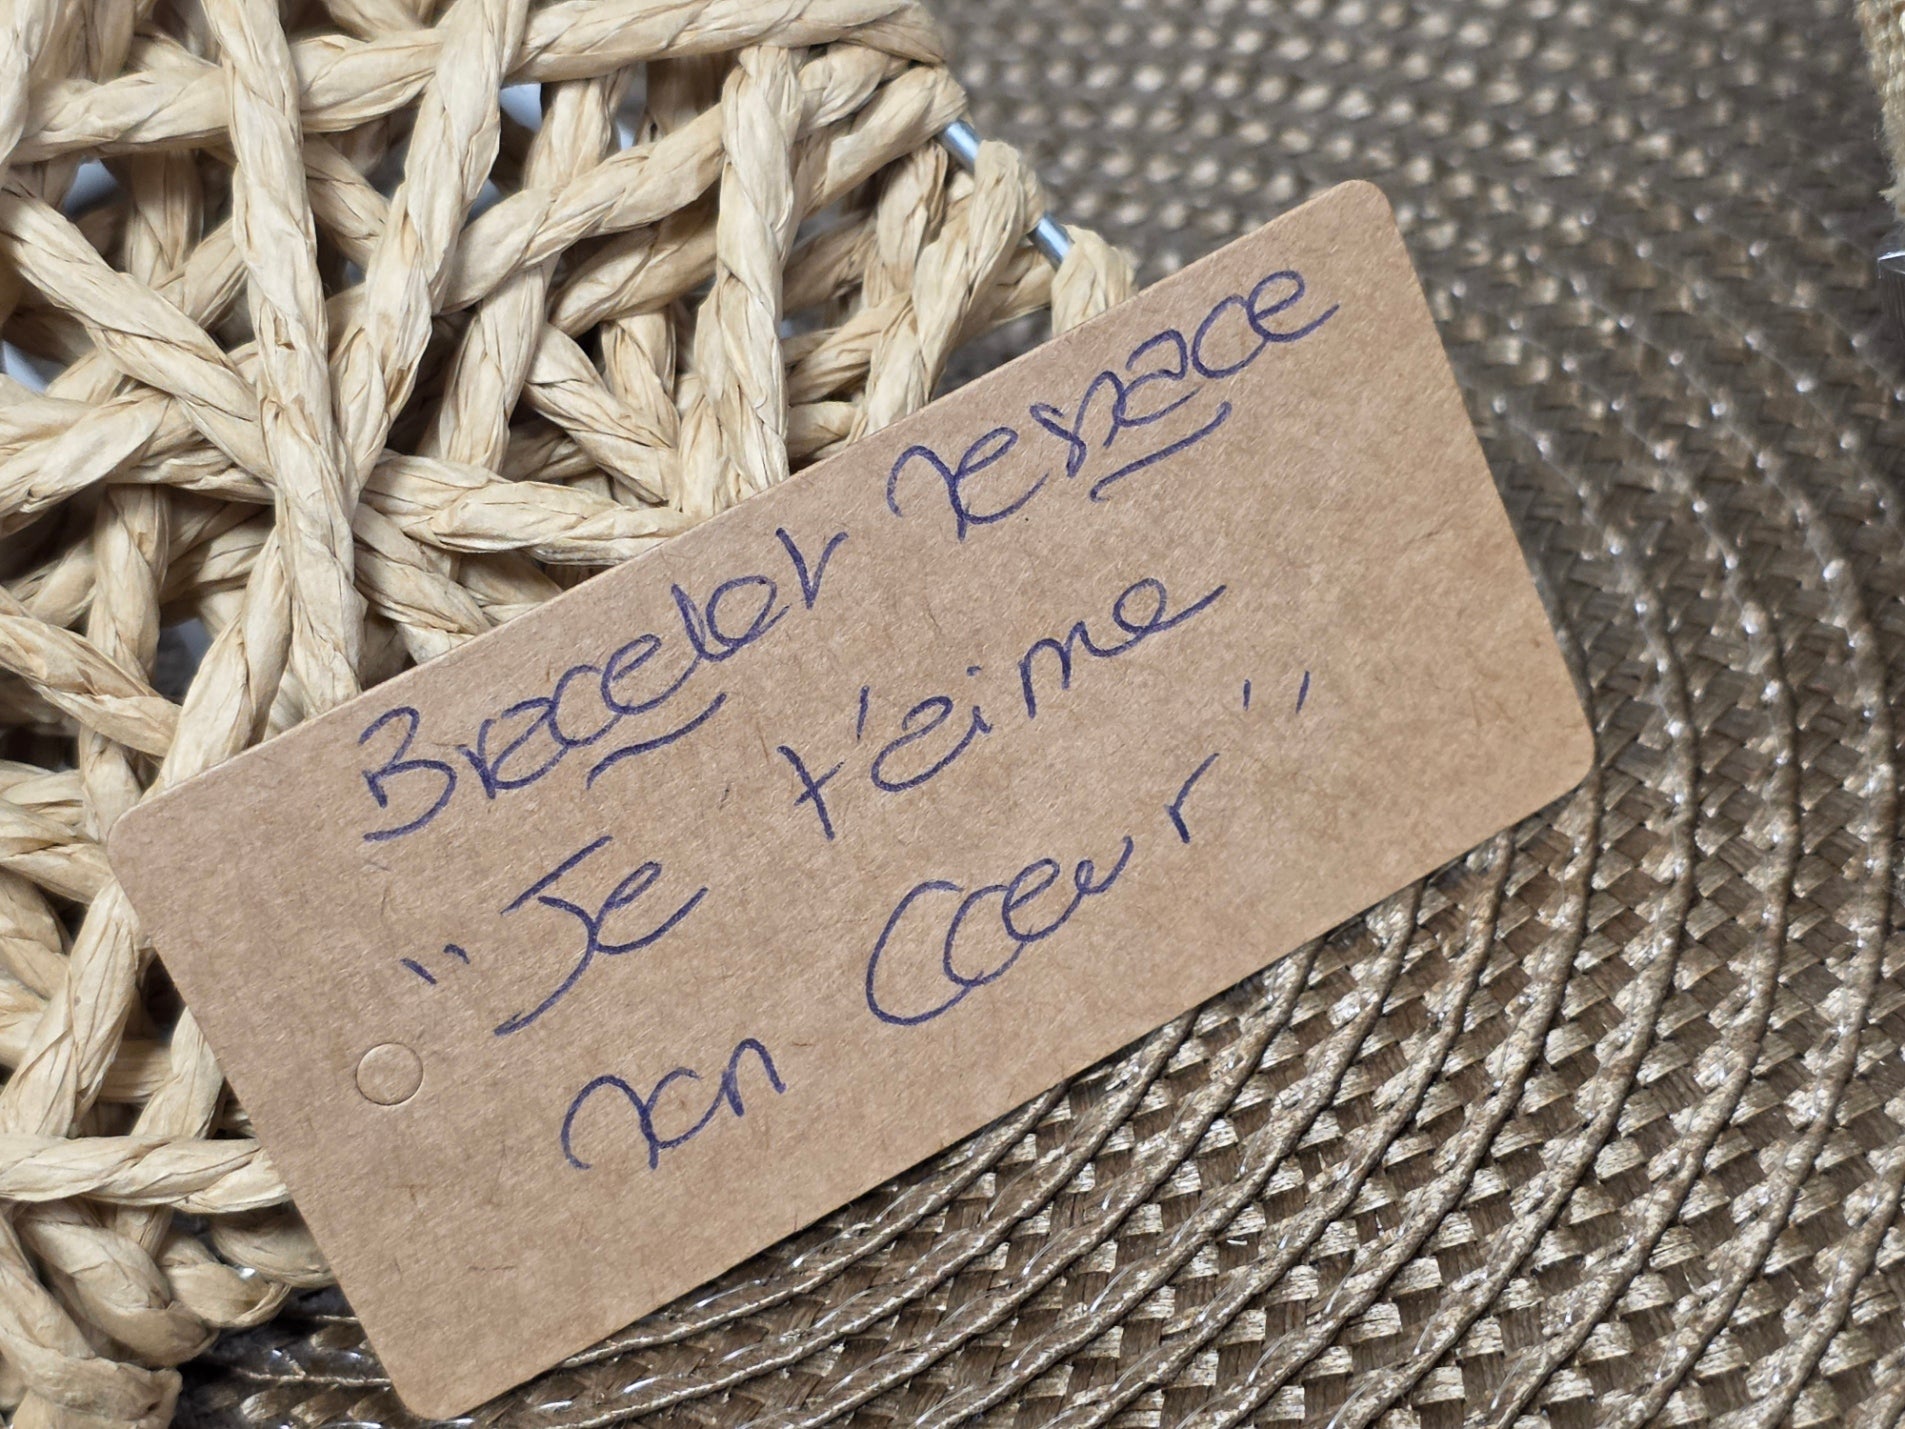 Bracelet
"Je t'aime
mon Coeur"